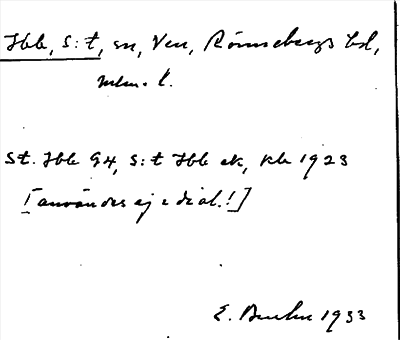 Ibb, S:t, sn, Ven, Rönnebergs hd,
Mlm. l.
St. Ibb G4, S:t Ibb ek, kb 1923
[användes ej i dial.!]
E. 1933